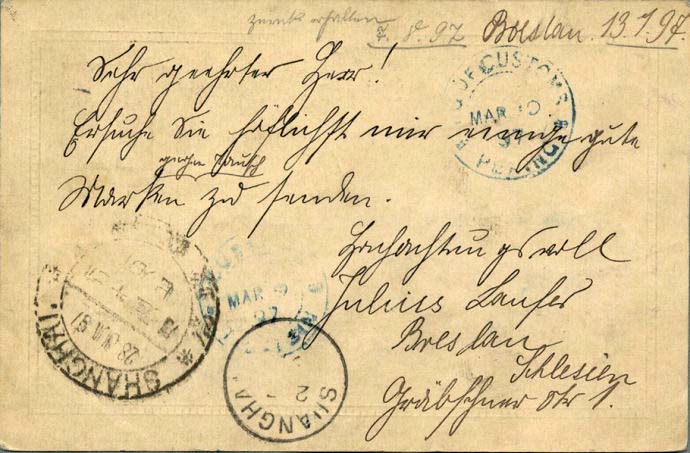 zurück erhalten
Breslau 13.1.97.
Sehr geehrter Herr!
Ersuche Sie höflichst mir einige gute
gegen Tausch
Marken zu senden.
Hochachtungsvoll
Julius Laufer
Breslau
Schlesien
Gräbschner Str 1.
CUSTOMS
MAR
MAR
97
SHANGHAI
SHANGHA
2